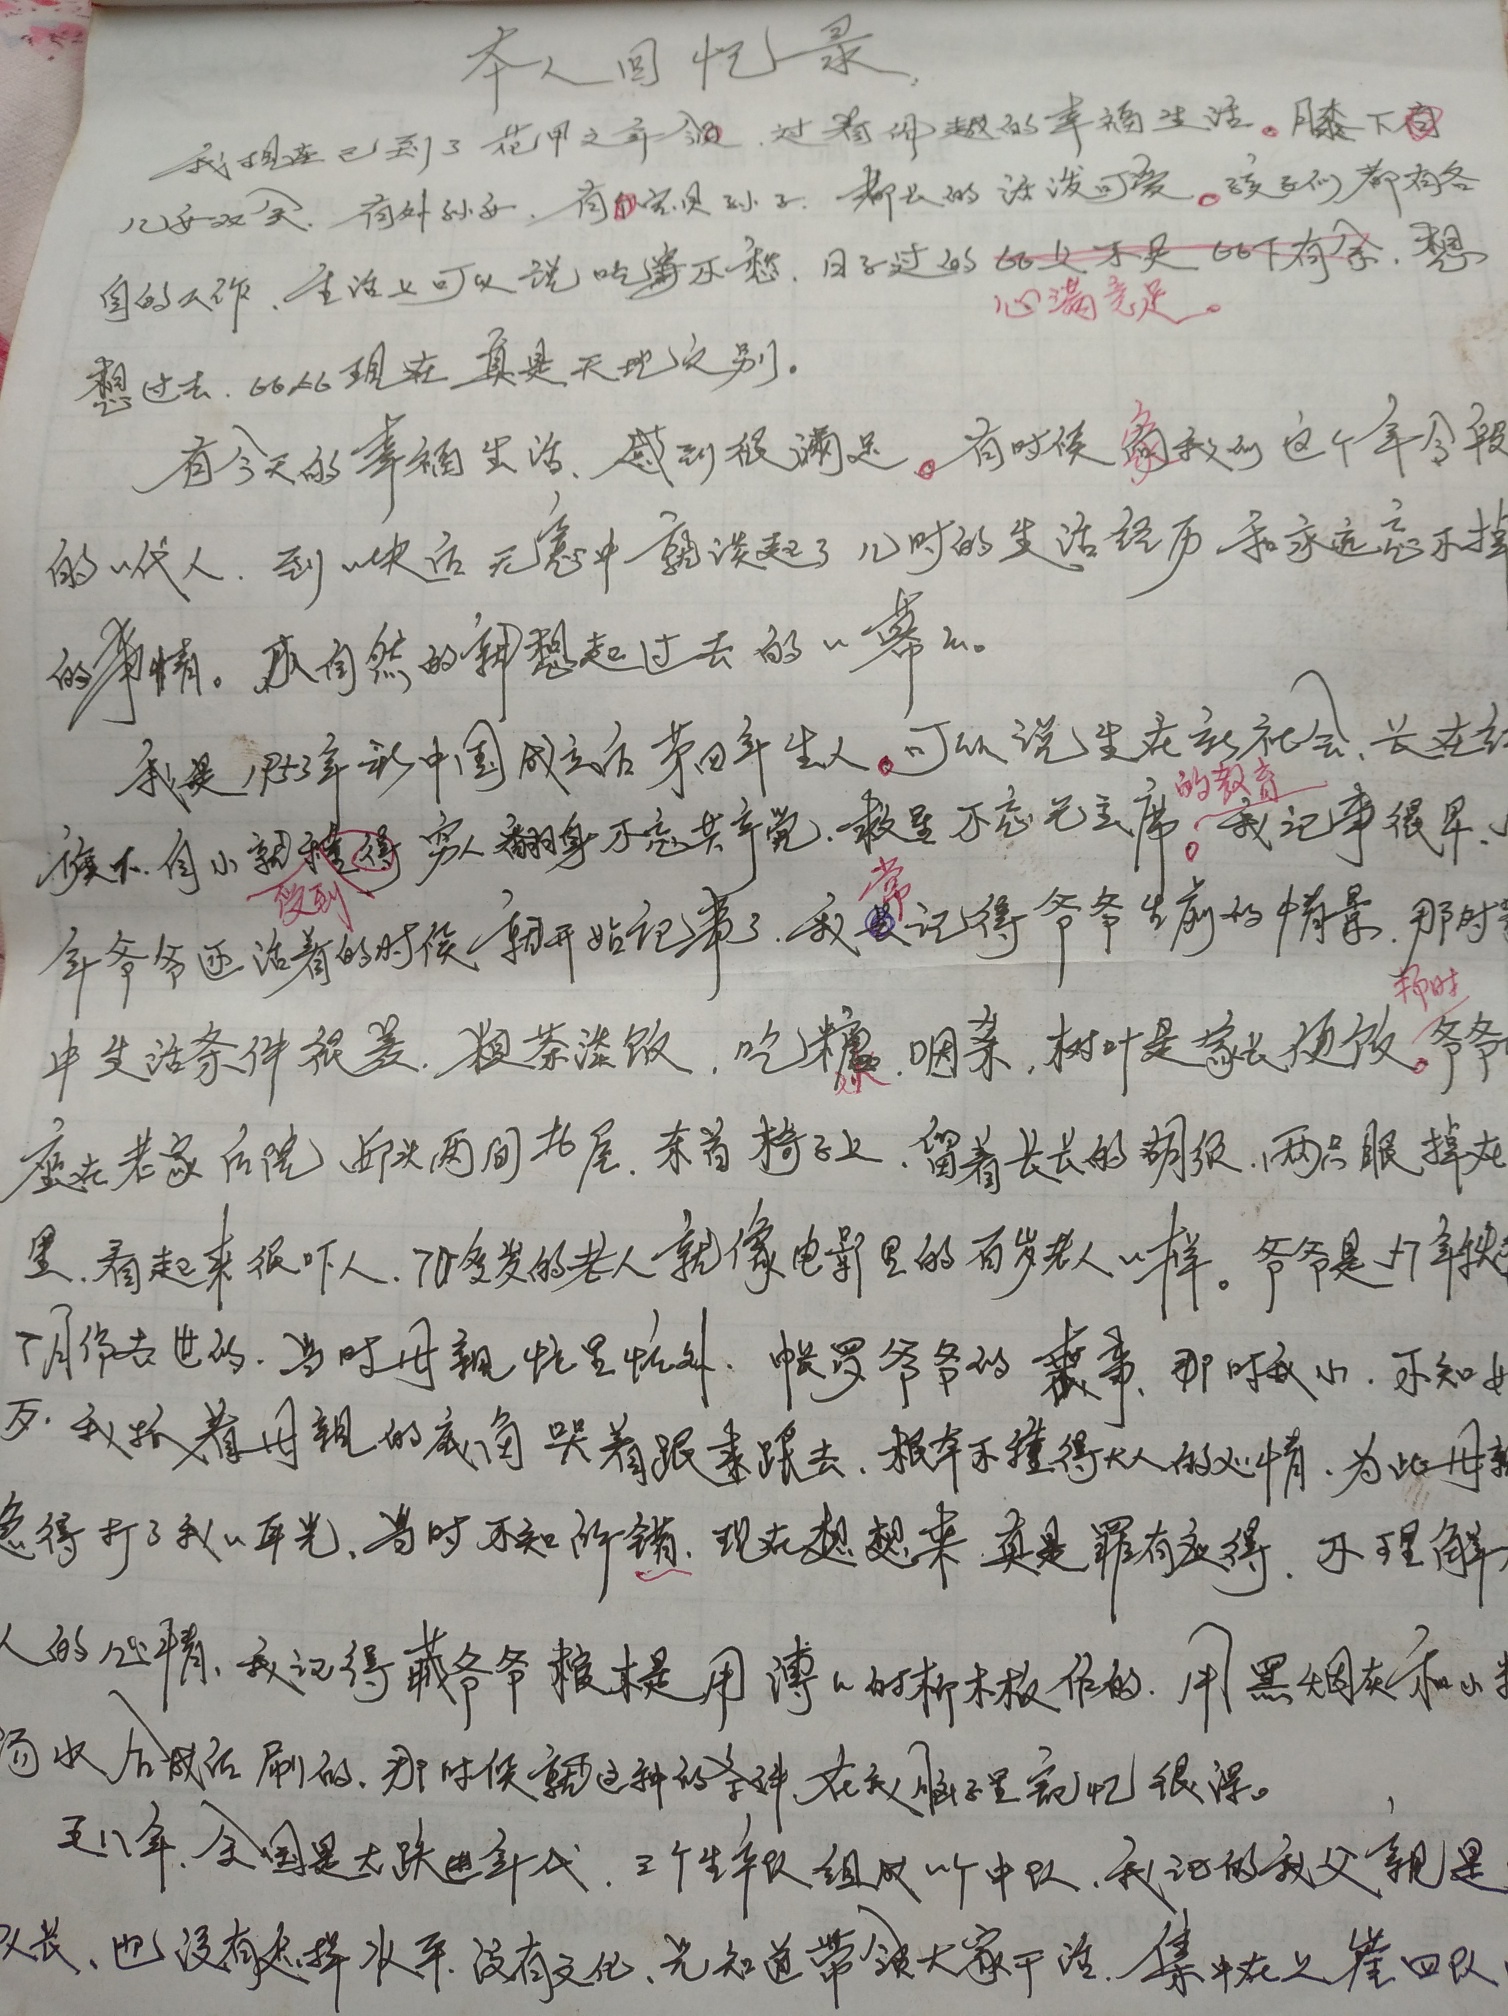 本人回忆录
我现在已到了花甲之年令 过着优越的幸福生活。膝下有
儿女双全、有外孙女、有宝贝孙子、都长的活泼可爱。孩子们都有各
自的工作、生活上可以说吃穿不愁、日子过的比上不足比下有余、想
心满意足。
想过去、比比现在真是天地之别。
有今天的幸福生活、感到很满足。有时候像我们这个年令段
的一代人、到一块后无意中就谈起了儿时的生活经历和永远忘不掉
的事情。很自然的就想起过去的一幕幕。
我是1953年新中国成立后第四年生人。可以说生在新社会、长在红
的教育
旗下、自小就懂得穷人翻身不忘共产党、救星不忘毛主席。我记事很早、
受到
常
年爷爷还活着的时候就开始记事了、我记得爷爷生前的情景、那时
那时
中生活条件很差、粗茶淡饭、吃糠、咽菜、树叶是家长便饭。爷爷
座在老家后院 两间北屋、东首椅子上、留着长长的胡须、两只眼掉在
里、看起来很吓人、70多岁的老人就像电影里的百岁老人一样。爷爷是57年
7月份去世的、当时母亲忙里忙外、忙罗爷爷的丧事、那时我小、不知
歹、我抓着母亲的底角哭着跟来跟去、根本不懂得大人的心情、为此母亲
急得打了我一耳光、当时不知所错、现在想想来真是罪有应得、不理解
人的心情、我记得藏爷爷棺木是用薄薄的柳木板作的、用黑烟灰和小
汤水合成后刷的、那时候就这种的条件、在我脑子里记忆很深。
五八年、全国是大跃进年代、三个生产队组成一个中队、我记的我父亲是
队长、也没有怎样水平、没有文化、光知道带领大家干活、集中在 崔四队